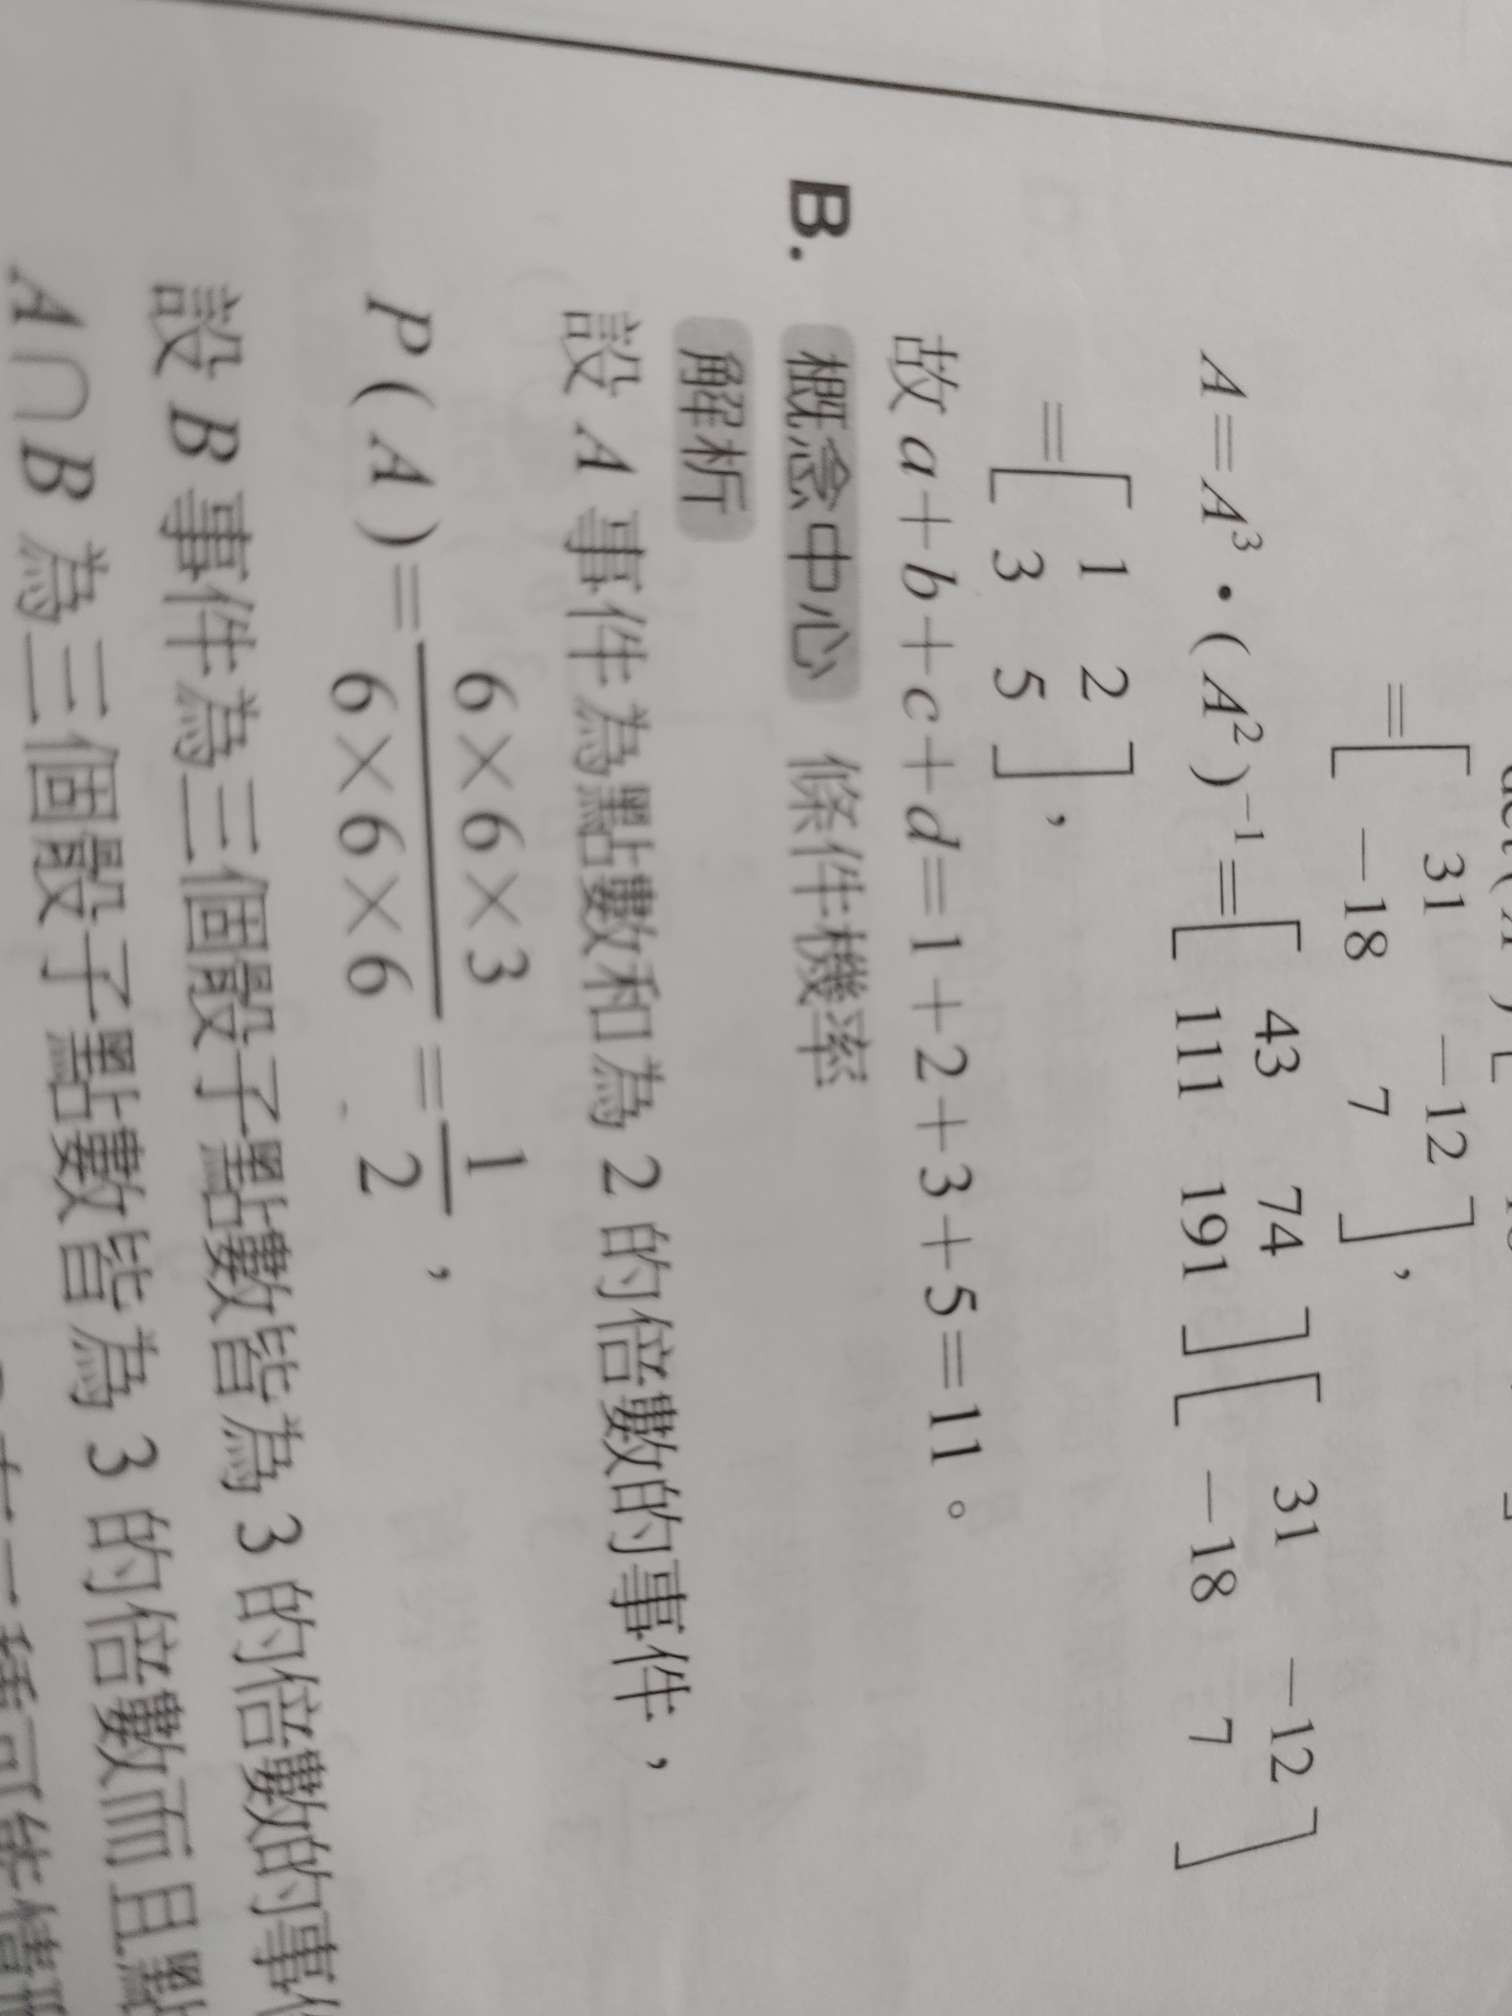 =[31 −12
−18 7],
A=A³·(A²)⁻¹=[43 74
111 191][31 −12
−18 7]
=[1 2
3 5],
故 a+b+c+d=1+2+3+5=11。
B. 概念中心 條件機率
解析
設 A 事件為點數和為 2 的倍數的事件，
P(A)=6×6×3/6×6×6=1/2，
設 B 事件為三個骰子點數皆為 3 的倍數的事件
A∩B 為三個骰子點數皆為 3 的倍數而且點